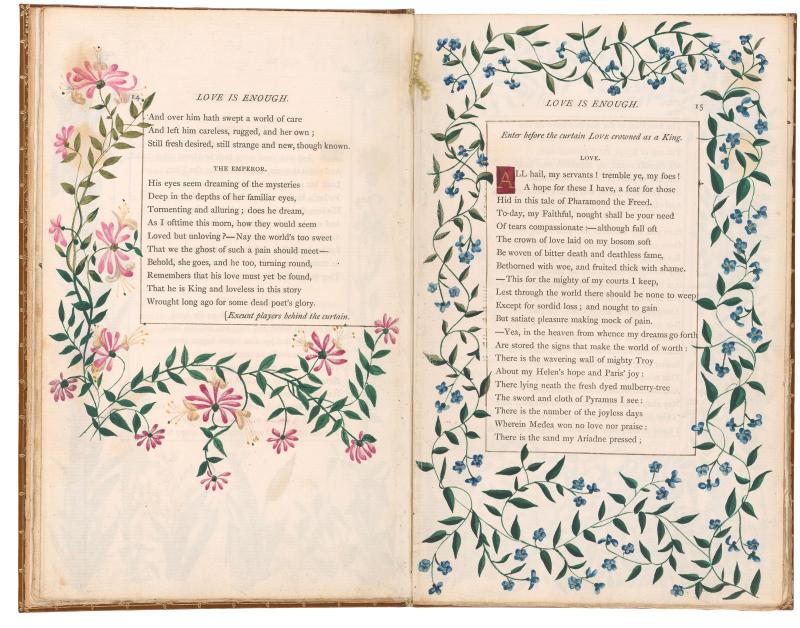 14
LOVE IS ENOUGH.
And over him hath swept a world of care
And left him careless, rugged, and her own ;
Still fresh desired, still strange and new, though known.
THE EMPEROR.
His eyes seem dreaming of the mysteries
Deep in the depths of her familiar eyes,
Tormenting and alluring ; does he dream,
As I ofttime this morn, how they would seem
Loved but unloving ?—Nay the world's too sweet
That we the ghost of such a pain should meet—
Behold, she goes, and he too, turning round,
Remembers that his love must yet be found,
That he is King and loveless in this story
Wrought long ago for some dead poet's glory.
[Exeunt players behind the curtain.
LOVE IS ENOUGH.
15
Enter before the curtain LOVE crowned as a King.
LOVE.
ALL hail, my servants ! tremble ye, my foes !
A hope for these I have, a fear for those
Hid in this tale of Pharamond the Freed.
To-day, my Faithful, nought shall be your need
Of tears compassionate :—although full oft
The crown of love laid on my bosom soft
Be woven of bitter death and deathless fame,
Bethorned with woe, and fruited thick with shame.
—This for the mighty of my courts I keep,
Lest through the world there should be none to weep
Except for sordid loss ; and nought to gain
But satiate pleasure making mock of pain.
—Yea, in the heaven from whence my dreams go forth
Are stored the signs that make the world of worth :
There is the wavering wall of mighty Troy
About my Helen's hope and Paris' joy :
There lying neath the fresh dyed mulberry-tree
The sword and cloth of Pyramus I see :
There is the number of the joyless days
Wherein Medea won no love nor praise :
There is the sand my Ariadne pressed ;